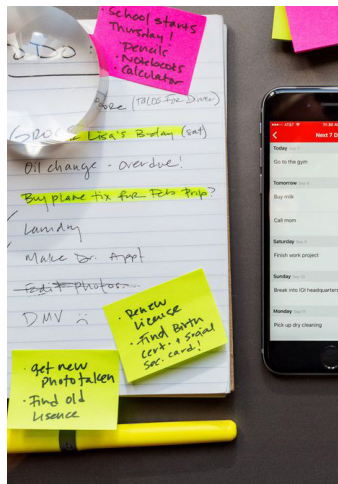 · School starts
Thursday!
· Pencils
· Notebooks
· Calculator
TO DO:
(TACOS FOR Dinner)
Lisa's B-day (sat)
Oil change - overdue!
Buy plane tix for Feb Trip?
Laundry
Make Dr. Appt
Edit photos
DMV
· Renew
license
· Find Birth
cert. + social
sec. card!
· get new
photo taken
· Find old
lisence
AT&T
11:30 AM
Next 7 D
Today Sep 7
Go to the gym
Tomorrow Sep 8
Buy milk
Call mom
Saturday Sep 9
Finish work project
Sunday Sep 10
Break into IOI headquarters
Monday Sep 11
Pick up dry cleaning